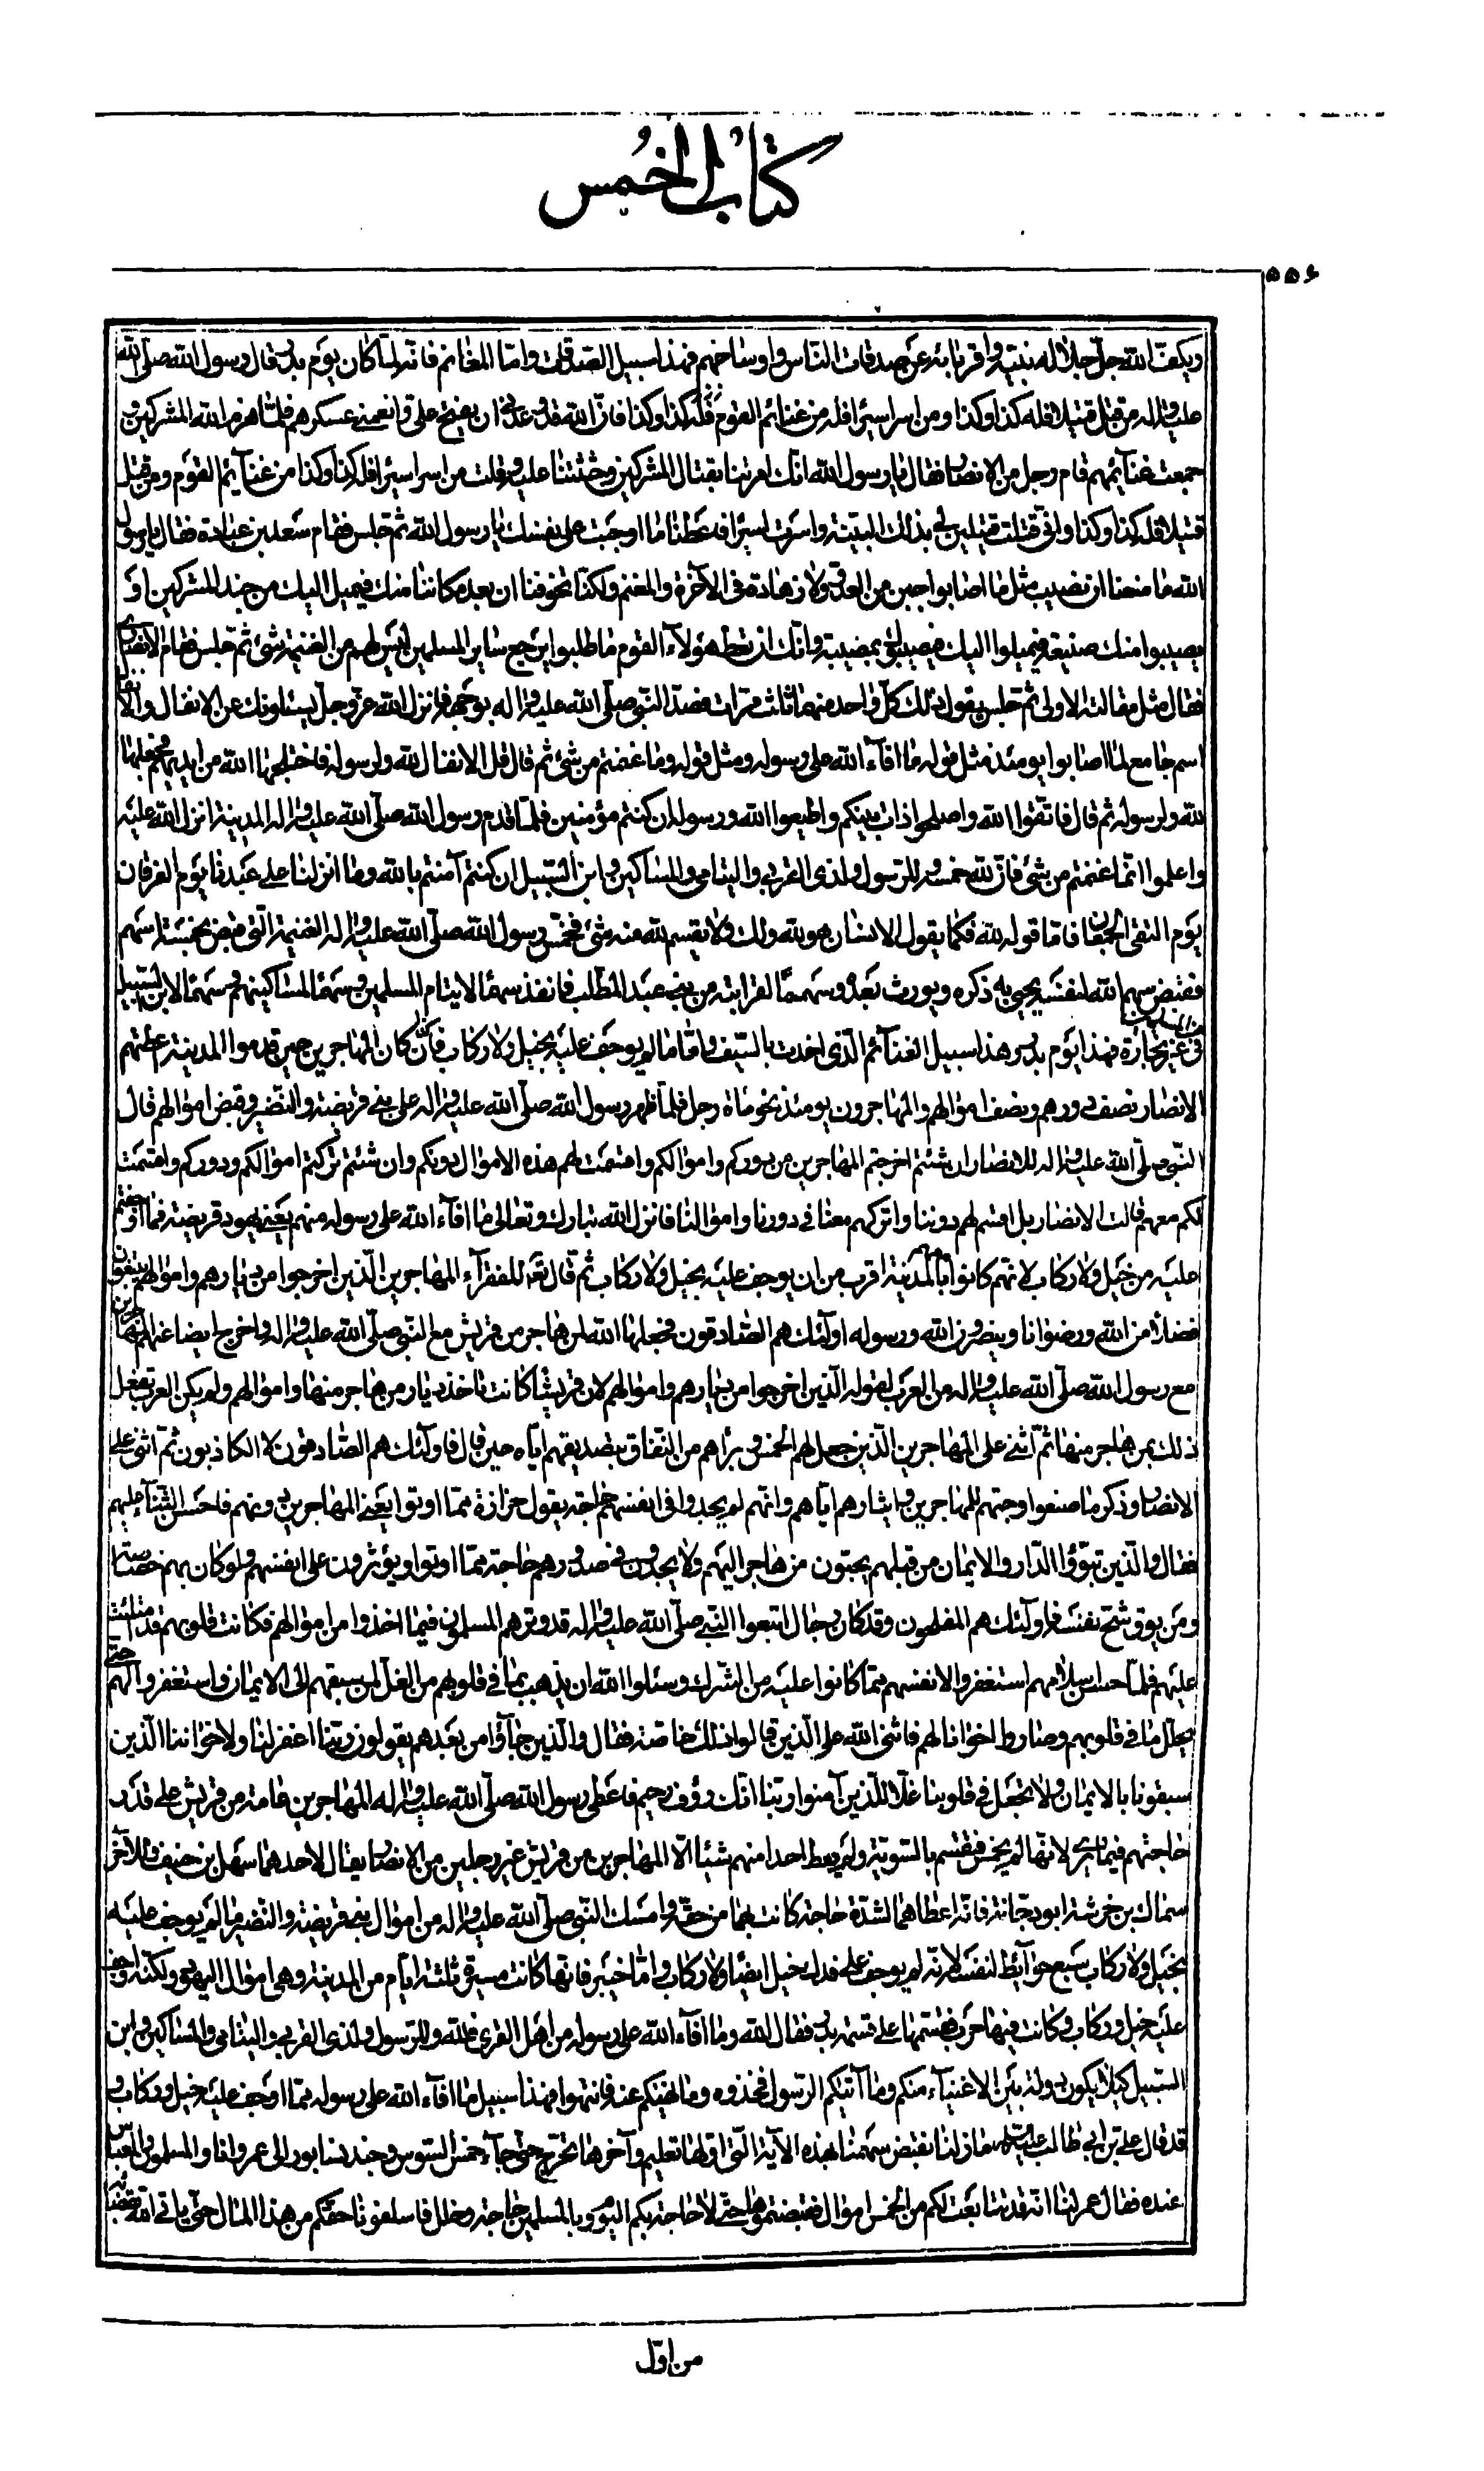 كتاب الخمس
٥٥٤
ويكف الله جل جلاله نبيه واقربائه عن صدقات الناس واوساخهم فهذا سبيل الصدقات واما المغانم فانه لما كان يوم بدر قال رسول الله صلى الله
عليه واله من قتل قتيلا فله كذا وكذا ومن اسر اسيرا فله من غنائم القوم كذا وكذا فان الله قد وعدني ان يفتح علي وانعمني عسكرهم فلما هزم الله المشركين و
جمعت غنائمهم قام رجل من الانصار فقال يا رسول الله انك امرتنا بقتال المشركين وحثثتنا عليه وقلت من اسر اسيرا فله كذا وكذا من غنائم القوم ومن قتل
قتيلا فله كذا وكذا واني قتلت قتيلين لي بذلك البينة واسرت اسيرا فاعطنا ما اوجبت على نفسك يا رسول الله ثم جلس فقام سعد بن عبادة فقال يا رسول
الله ما منعنا ان نصيب مثل ما اصابوا جبن من العدو ولا زهادة في الآخرة والمغنم ولكنا تخوفنا ان بعد مكاننا منك فيميل اليك من جند المشركين او
يصيبوا منك ضيعة فيميلوا اليك فيصيبوك بمصيبة وانك ان تعط هؤلاء القوم ما طلبوا يرجع سائر المسلمين ليس لهم من الغنيمة شيء ثم جلس فقام الانصاري
فقال مثل مقالته الاولى ثم جلس يقول ذلك كل واحد منهما ثلث مرات فصد النبي صلى الله عليه واله بوجهه فانزل الله عز وجل يسئلونك عن الانفال والانفال
اسم جامع لما اصابوا يومئذ مثل قوله ما افآء الله على رسوله ومثل قوله وما غنمتم من شيء ثم قال قل الانفال لله ولرسوله فاختلجها الله من ايديهم فجعلها
لله ولرسوله ثم قال فاتقوا الله واصلحوا ذات بينكم واطيعوا الله ورسوله ان كنتم مؤمنين فلما قدم رسول الله صلى الله عليه واله المدينة انزل الله عليه
واعلموا انما غنمتم من شيء فان لله خمسه وللرسول ولذي القربى واليتامى والمساكين وابن السبيل ان كنتم آمنتم بالله وما انزلنا على عبدنا يوم الفرقان
يوم التقى الجمعان فاما قوله لله فكما يقول الانسان هو لله ولك ولا يقسم لله منه شيء فخمس رسول الله صلى الله عليه واله الغنيمة التي قبض بخمسة اسهم
فقبض سهم الله لنفسه يحيى به ذكره ويورث بعده وسهما لقرابته من بني عبد المطلب فانفذ سهما لايتام المسلمين وسهما لمساكينهم وسهما لابن السبيل
في غير تجارة فهذا يوم بدر وهذا سبيل الغنآئم الذي اخذت بالسيف واما ما لم يوجف عليه بخيل ولا ركاب فان كان المهاجرين حين قدموا المدينة اعطتهم
الانصار نصف دورهم ونصف اموالهم والمهاجرون يومئذ نحو مأة رجل فلما ظهر رسول الله صلى الله عليه واله على بني قريضة والنضير وقبض اموالهم قال
النبي صلى الله عليه واله للانصار ان شئتم اخرجتم المهاجرين من دوركم واموالكم واقتسمت لهم هذه الاموال دونكم وان شئتم تركتم اموالكم ودوركم واقتسمت
لكم معهم قالت الانصار بل اقسم لهم دوننا واتركهم معنا في دورنا واموالنا فانزل الله تبارك وتعالى ما افآء الله على رسوله منهم يعني يهود قريضة فما اوجفتم
عليه من خيل ولا ركاب لانهم كانوا معهم بالمدينة اقرب من ان يوجف عليه بخيل ولا ركاب ثم قال تعه للفقرآء المهاجرين الذين اخرجوا من ديارهم واموالهم يبتغون
فضلا من الله ورضوانا وينصرون الله ورسوله اولئك هم الصادقون فجعلها الله لمن هاجر من قريش مع النبي صلى الله عليه واله واخرج ايضا عنهم المهاجرين
مع رسول الله صلى الله عليه واله من العرب لقوله الذين اخرجوا من ديارهم واموالهم لان قريشا كانت تاخذ ديار من هاجر منها واموالهم ولم يكن العرب تفعل
ذلك بمن هاجر منها ثم اثنى على المهاجرين الذين جعل لهم الخمس وبرأهم من النفاق بتصديقهم اياه حين قال فاولئك هم الصادقون لا الكاذبون ثم اثنى على
الانصار وذكر ما صنعوا وحبهم للمهاجرين وايثارهم اياهم وانهم لم يجدوا في انفسهم حاجة يقول حزازة مما اوتوا يعني المهاجرين دونهم فاحسن الثنآء عليهم
فقال والذين تبوؤا الدار والايمان من قبلهم يحبون من هاجر اليهم ولا يجدون في صدورهم حاجة مما اوتوا ويؤثرون على انفسهم ولو كان بهم خصاصة
ومن يوق شح نفسه فاولئك هم المفلحون وقد كان رجال اتبعوا النبي صلى الله عليه واله قد وترهم المسلمون فيما اخذوا من اموالهم فكانت قلوبهم قد امتلئت
عليهم فلما حسن اسلامهم استغفروا لانفسهم مما كانوا عليه من الشرك وسئلوا الله ان يذهب بما في قلوبهم من الغل لمن سبقهم الى الايمان واستغفروا لهم حتى
يحلل ما في قلوبهم وصاروا اخوانا لهم فاثنى الله على الذين قالوا ذلك خاصة فقال والذين جآؤا من بعدهم يقولون ربنا اغفر لنا ولاخواننا الذين
سبقونا بالايمان ولا تجعل في قلوبنا غلا للذين آمنوا ربنا انك رؤف رحيم فاعطى رسول الله صلى الله عليه واله المهاجرين عامة من قريش على قدر
حاجتهم فيما يرى لانها لم يخمس فتقسم بالسوية ولم يعط احدا منهم شيئا الا المهاجرين من قريش غير رجلين من الانصار يقال لاحدهما سهل بن حنيف وللآخر
سماك بن خرشة ابو دجانة فانه اعطاهما لشدة حاجة كانت بهما من حقه وامسك النبي صلى الله عليه واله من اموال بني قريضة والنضير ما لم يوجف عليه
بخيل ولا ركاب سبع حوآئط لنفسه لانه لم يوجف على فدك بخيل ايضا ولا ركاب واما خيبر فانها كانت مسيرة ثلثة ايام من المدينة وهي اموال اليهود ولكنه اوجف
عليه خيل وركاب وكانت فيها حرب فقسمها على قسمة بدر فقال الله وما افآء الله على رسوله من اهل القرى فلله وللرسول ولذي القربى واليتامى والمساكين وابن
السبيل كيلا يكون دولة بين الاغنيآء منكم وما آتيكم الرسول فخذوه وما نهيكم عنه فانتهوا فهذا سبيل ما افآء الله على رسوله مما اوجف عليه خيل وركاب و
قد قال علي بن ابي طالب عليه السلم ما زلنا نقبض سهمنا بهذه الآية التي اولها تعليم وآخرها تحرج حتى جآء خمس السوس وجندیسابور الى عمر وانا والمسلمون والعباس
عنده فقال عمر لنا انه قد تتابعت لكم من الخمس اموال فقبضتموها حتى لا حاجة بكم اليوم وبالمسلمين حاجة وخلل فاسلفونا حقكم من هذا المال حتى ياتي الله بقضائه
من اول